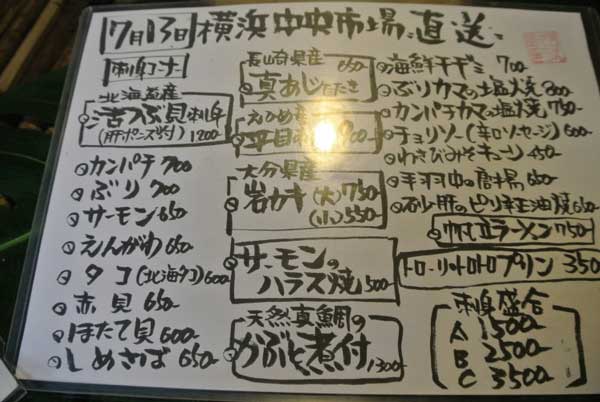 7月13日横浜中央市場直送
刺身コーナー
北海道産
活つぶ貝刺身
(肝ポン酢付) 1200
カンパチ 700
ぶり 700
サーモン 650
えんがわ 650
タコ(北海タコ) 600
赤貝 650
ほたて貝 600
しめさば 650
長崎県産 650
真あじたたき
えひめ産
平目 900
大分県産
岩カキ (大) 750
(小) 550
サーモンの
ハラス焼 500
天然真鯛の
かぶと煮付 1300
海鮮チヂミ 700
ぶりカマの塩焼 800
カンパチカマの塩焼 750
チョリソー(辛口ソーセージ) 600
わさびみそキューリ 450
手羽中の唐揚 650
砂肝のピリ辛正油焼 650
帆立ラーメン 750
トローリ・トロトロプリン 350
刺身盛合
A 1500
B 2500
C 3500